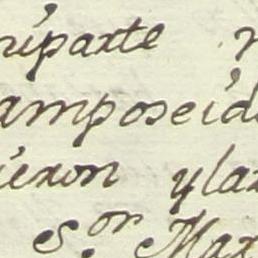 riparte
amposeid
ieron yla
S.or Mar